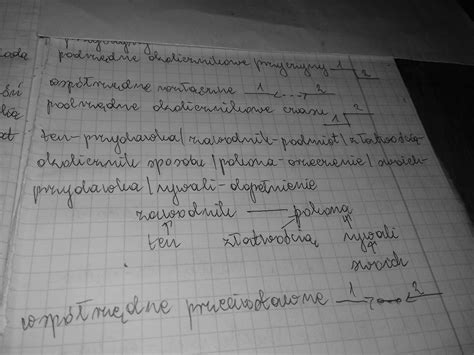 podrzędne okolicznikowe przyczyny 1 2
współrzędne rozłączne 1 ... 2
podrzędne okolicznikowe czasu 1 2
ten-przydawka/zawodnik-podmiot/z łatwością-
okolicznik sposobu/pokona-orzeczenie/swoich-
przydawka/rywali-dopełnienie
zawodnik — pokona
ten z łatwością rywali
swoich
współrzędne przeciwstawne 1 2